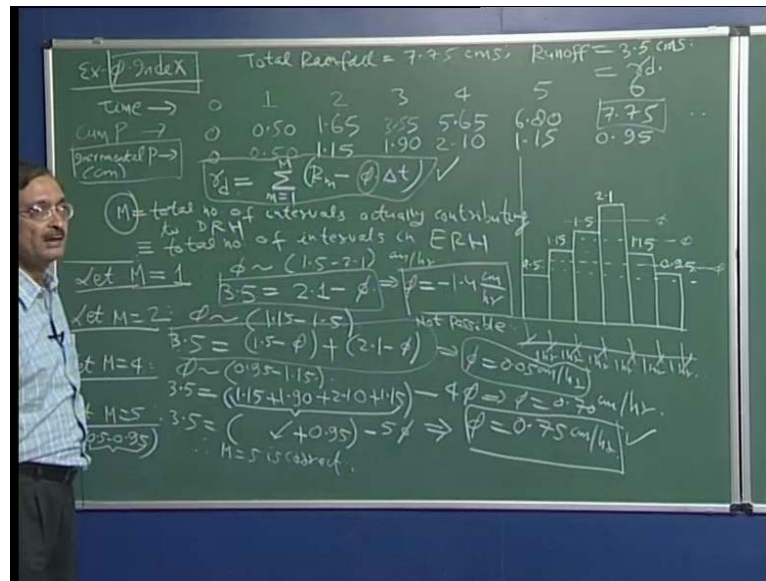 Ex- φ-Index Total Rainfall = 7.75 cms; Runoff = 3.5 cms.
= rd.
Time → 0 1 2 3 4 5 6
Cum P → 0 0.50 1.65 3.55 5.65 6.80 7.75 ...
Incremental P → (cm) 0 0.50 1.15 1.90 2.10 1.15 0.95
rd = Σ M m=1 (Rm - φ Δt) ✓
M = total no of intervals actually contributing
to DRH
≡ total no of intervals in ERH
φ ~ (1.5-2.1) cm/hr
Let M=1 3.5 = 2.1 - φ ⇒ φ = -1.4 cm/hr
Not Possible.
Let M=2: φ ~ (1.15-1.5)
3.5 = (1.5-φ) + (2.1-φ) ⇒ φ = 0.05 cm/hr
et M=4: φ ~ (0.95-1.15).
3.5 = (1.15+1.90+2.10+1.15) - 4φ ⇒ φ = 0.70 cm/hr.
et M=5: 3.5 = ( ✓ +0.95) - 5φ ⇒ φ = 0.75 cm/hr ✓
0.5-0.95)
∴ M=5 is correct.
2.1
1.5 φ
1.15 1.15 φ
0.5 0.95 φ
1hr 1hr 1hr 1hr 1hr 1hr